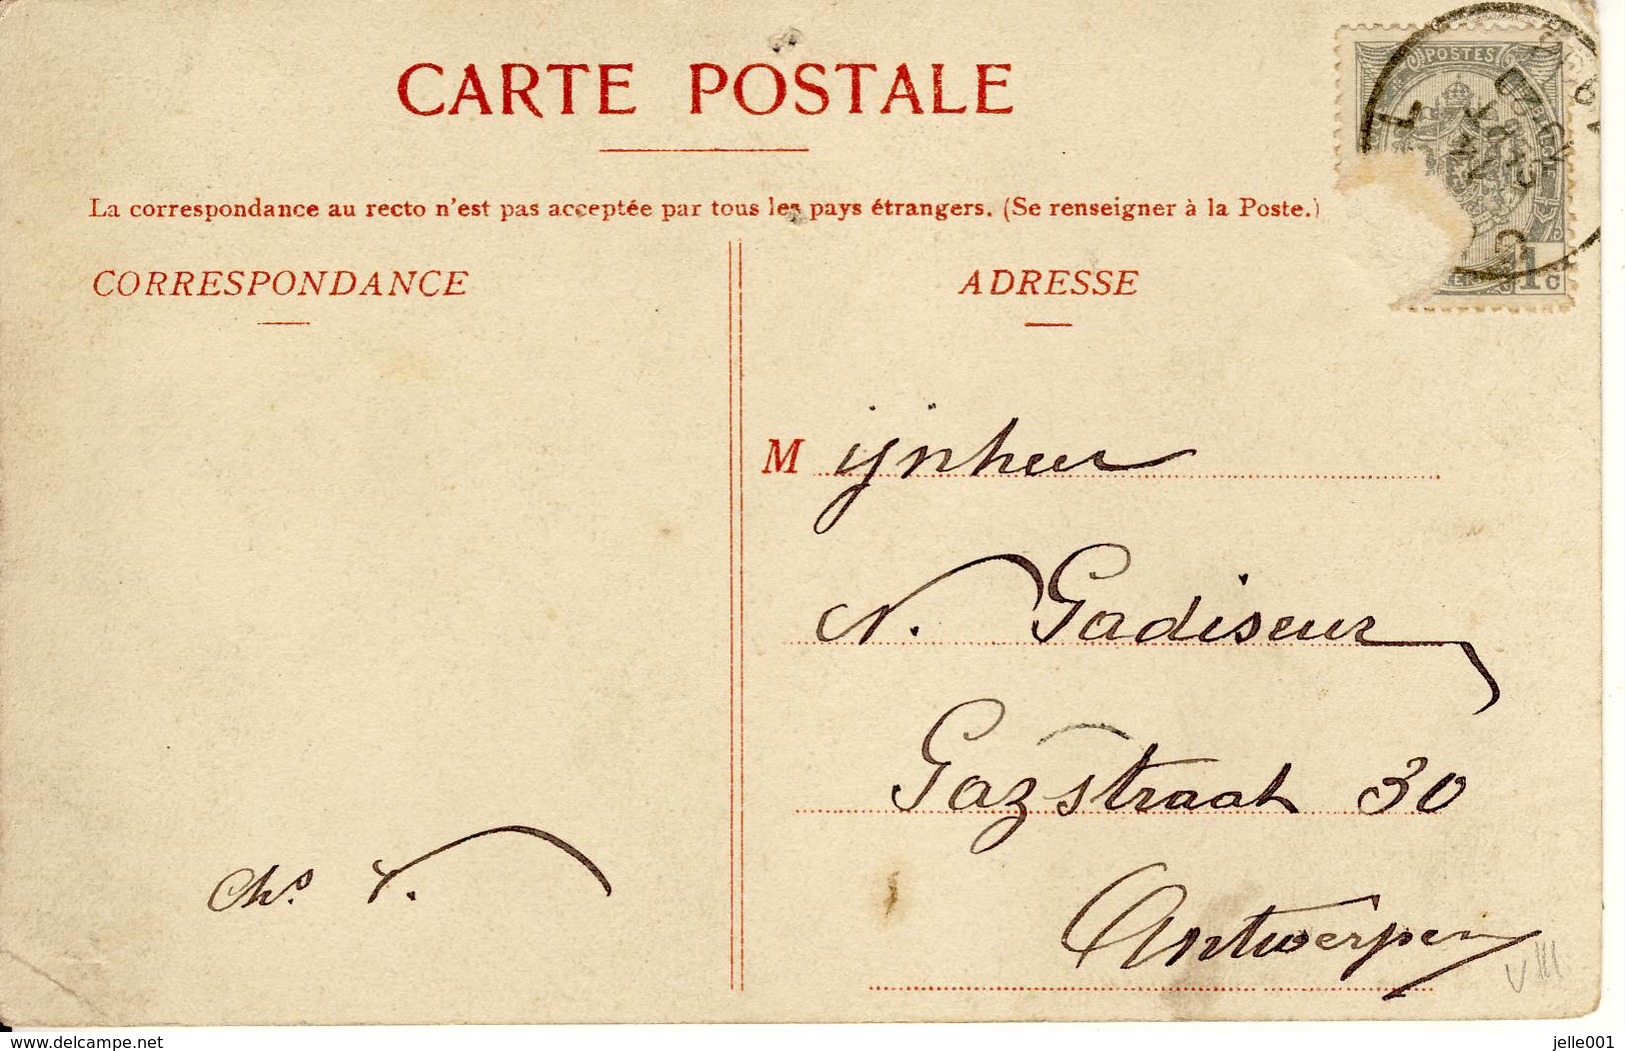 CARTE POSTALE
La correspondance au recto n'est pas acceptée par tous les pays étrangers. (Se renseigner à la Poste.)
CORRESPONDANCE
ADRESSE
POSTES
1c
M ijnheer
N. Gadiseur
Gazstraat 30
Antwerpen
Chs. V.
delcampe.net
jelle001